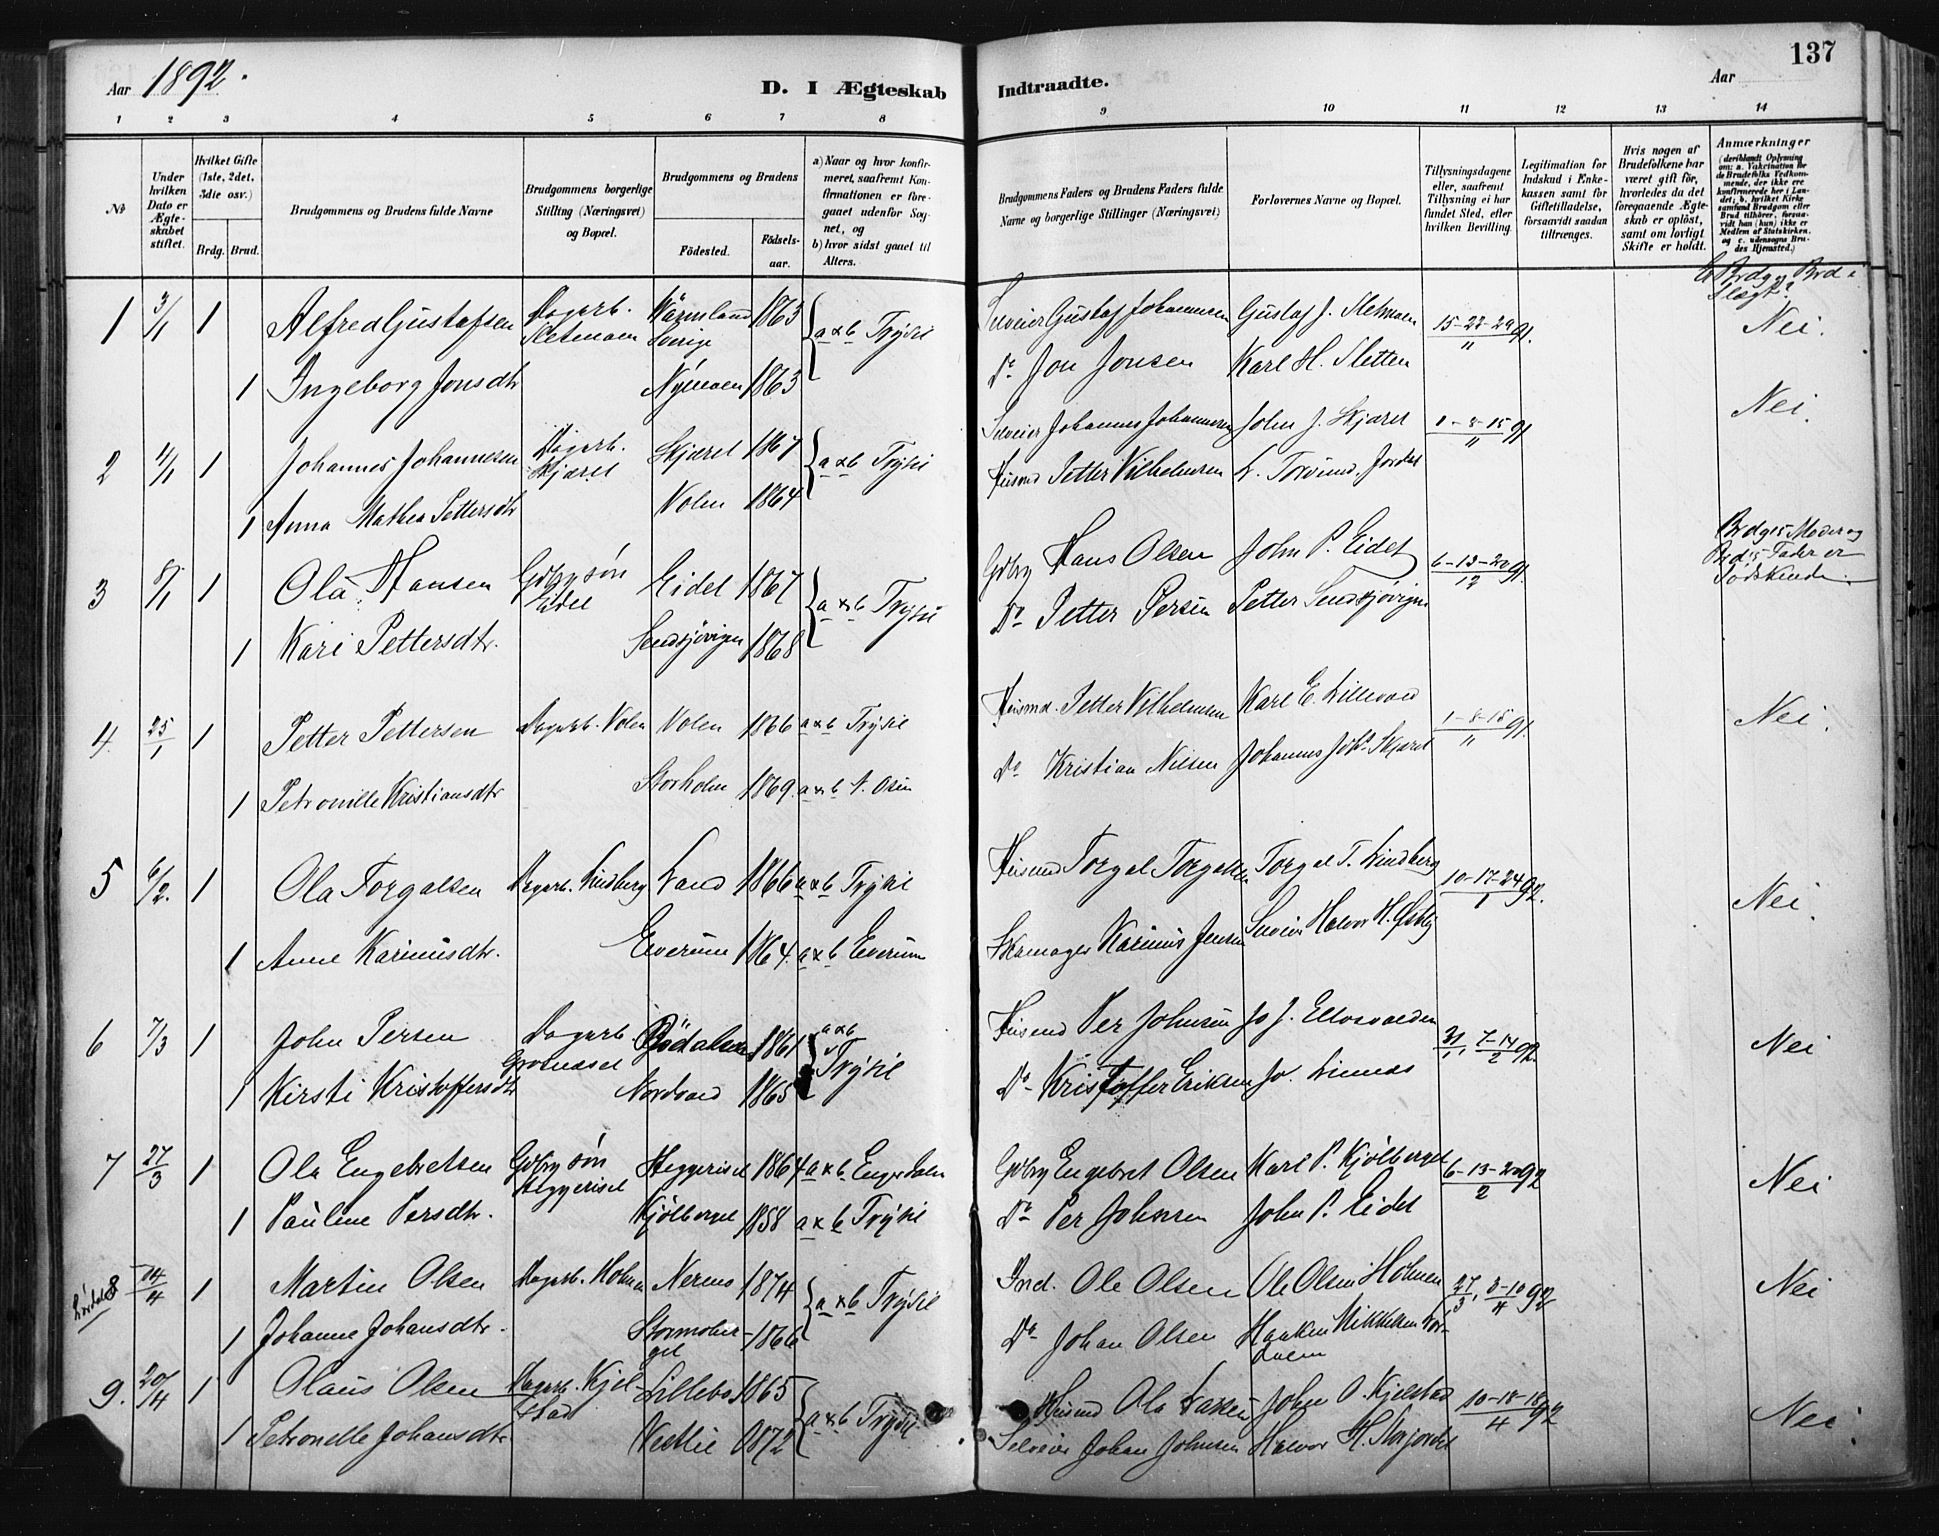 Aar 1892. D. I Ægteskab Indtraadte. Aar 137
1 2 3 4 5 6 7 8 9 10 11 12 13 14
№
Under hvilken Dato er Ægteskabet stiftet.
Hvilket Gifte (1ste, 2det, 3die osv.)
Brdg. Brud.
Brudgommens og Brudens fulde Navne
Brudgommens borgerlige Stilling (Næringsvei) og Bopæl.
Brudgommens og Brudens
Födested. Födsels-aar.
a) Naar og hvor konfirmeret, saafremt Konfirmationen er foregaaet udenfor Sognet, og
b) hvor sidst gaaet til Alters.
Brudgommens Faders og Brudens Faders fulde Navne og borgerlige Stillinger (Næringsvei)
Forlovernes Navne og Bopæl.
Tillysningsdagene eller, saafremt Tillysning ei har fundet Sted, efter hvilken Bevilling.
Legitimation for Indskud i Enkekassen samt for Giftetilladelse, forsaavidt saadan tiltrænges.
Hvis nogen af Brudefolkene har været gift før, hvorledes da det foregaaende Ægteskab er opløst, samt om lovligt Skifte er holdt.
Anmærkninger
(deriblandt Oplysning om: a. Vakcination for de Brudefolks Vedkommende, der ikke ere konfirmerede her i Landet; b. hvilket Kirkesamfund Brudgom eller Brud tilhører, forsaavidt han (hun) ikke er Medlem af Statskirken, og c. udensogns Brudes Hjemsted.)
Er Brdg og Brd i Slægt?
1 3/1 1 Alfred Gustafsen Dagarb. Sletmoen Värmland Sverige 1863 a & b Trysil Selveier Gustaf Johannesen Gustaf J. Sletmoen 15-22-29/11 91. Nei.
1 Ingeborg Jonsdtr Nymoen 1863 Do Jon Jonsen Karl H. Sletten
2 4/1 1 Johannes Johannesen Dagarb. Skjæret Skjæret 1867 a & b Trysil Selveier Johannes Johannesen John J. Skjæret 1-8-15/11 91 Nei.
1 Anna Mathea Pettersdtr Volen 1864 Husmd Petter Vilhelmsen L. Torsund. Jordet
3 8/1 1 Ola Hansen Gdbrg søn Eidet Eidet 1867 a & b Trysil Gdbrg Hans Olsen John P. Eidet 6-13-20/12 91. Brdg's Moder og Brd's Fader er Sødskende
1 Kari Pettersdtr. Sendsjøvigen 1868 Do Petter Persen Petter Sendsjøvigen
4. 25/1 1 Petter Pettersen Dagarb. Volen Volen 1866 a & b Trysil Husmd. Petter Vilhelmsen Karl E. Lillevold 1-8-15/11 91. Nei.
1 Petronille Kristiansdtr Storholm 1869. a & b t. Osen Do Kristian Nilsen Johannes Johs Skjæret
5 6/2. 1 Ola Torgalsen Dagarb. Lindberg Land 1866 a & b Trysil Husmd Torgal Torgalsen Torgal T. Lindberg 10-17-24/1 92. Nei.
1 Anne Karinusdtr. Elverum 1864. a & b Elverum Skomager Karinus Jensen Selveier Halvor H. Østby
6 7/3 1 John Persen Dagarb. Grotnæset Bödalen 1861 a & b Trysil Husmd Per Johnsen Jo J. Ellosvolden 31/1, 7-14/2 92. Nei
1 Kirsti Kristoffersdtr Nordvold 1865 Do Kristoffer Eriksen Jo. Linnæs
7 27/3 1 Ola Engebretsen Gdbrg søn Heggeriset Heggeriset 1864 a & b Engerdalen Gdbrg Engebret Olsen Karl P. Kjølberget 6-13-20/2 92 Nei
1 Pauline Persdtr. Kjölberget 1858 a & b Trysil Do Per Johnsen John P. Eidet
8 14/4 1 Martin Olsen Dagarb. Holmen Neraas 1874 a & b Trysil Ind. Ole Olsen Ole Olsen Holmen 27/3, 3-10/4 92 Nei
1 Johanne Johansdtr. Stormoberget 1866 Do Johan Olsen Haaken Mikkelsen Lørdalen
9. 20/4 1 Olaus Olsen Dagarb. Kjelstad Lillebo 1865 a & b Trysil Husmd Ola Larsen John O. Kjelstad 10-18-18/4 92 Nei
1 Petronelle Johansdtr. Vestlie 1872 Selveier Johan Johnsen Halvor H. Storjordet